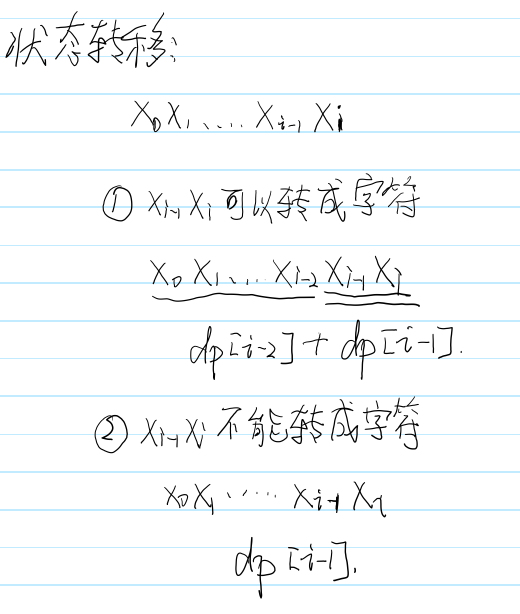 状态转移:
X₀X₁..... Xᵢ₋₁ Xᵢ
① Xᵢ₋₁Xᵢ可以转成字符
X₀ X₁.... Xᵢ₋₂ Xᵢ₋₁Xᵢ
dp[i-2]+dp[i-1].
② Xᵢ₋₁Xᵢ不能转成字符
X₀X₁...... Xᵢ₋₁ Xᵢ
dp[i-1].